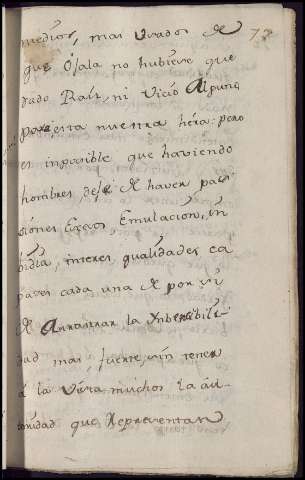 medios, mas Usados de
que Ojala no hubiere que
dado Raiz, ni Vicio Alguno
para esta nuestra hera: pero
es inposible que haviendo
hombres, deje de haver pasi
siones Ciegas Emulacion, in
bidia, interes, qualidades ca
paces cada una de por si
de Arrastrar la Ynbecibili
dad mas, fuerte, sin tener
á la Vista muchos la áu-
toridad que Representan